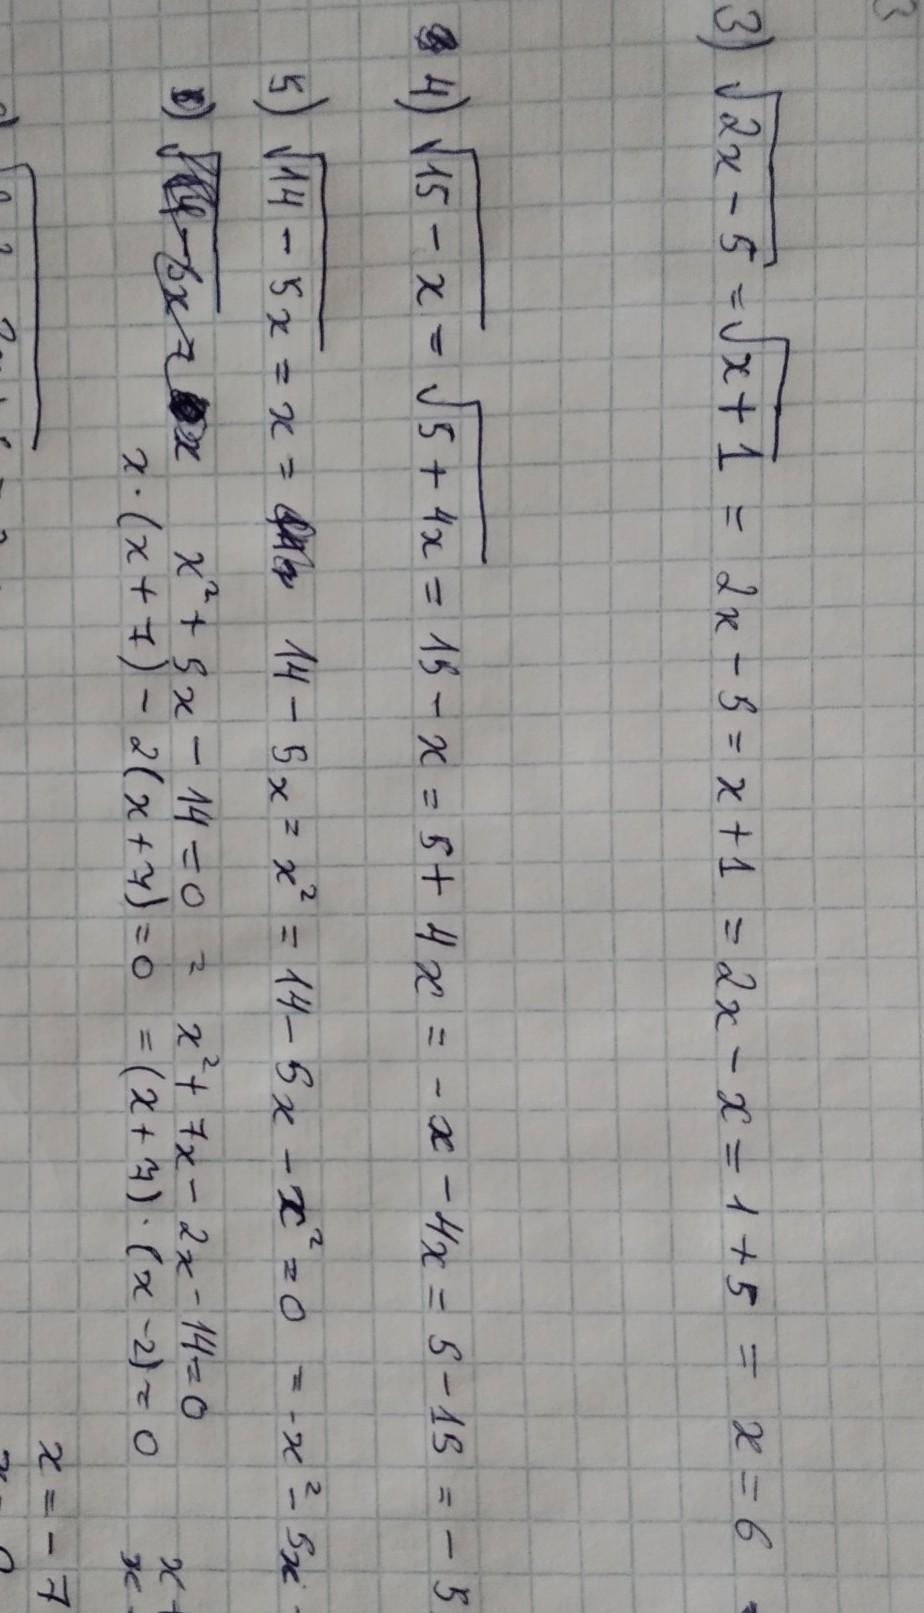 3) √2x - 5 = √x + 1 = 2x - 5 = x + 1 = 2x - x = 1 + 5 = x = 6 =
4) √15 - x = √5 + 4x = 15 - x = 5 + 4x = - x - 4x = 5 - 15 = - 5
5) √14 - 5x = x = 14 - 5x = x² = 14 - 5x - x² = 0 = - x² - 5x -
x² + 5x - 14 = 0 = x² + 7x - 2x - 14 = 0 x +
x · (x + 7) - 2(x + 7) = 0 = (x + 7) · (x - 2) = 0 x -
x = - 7